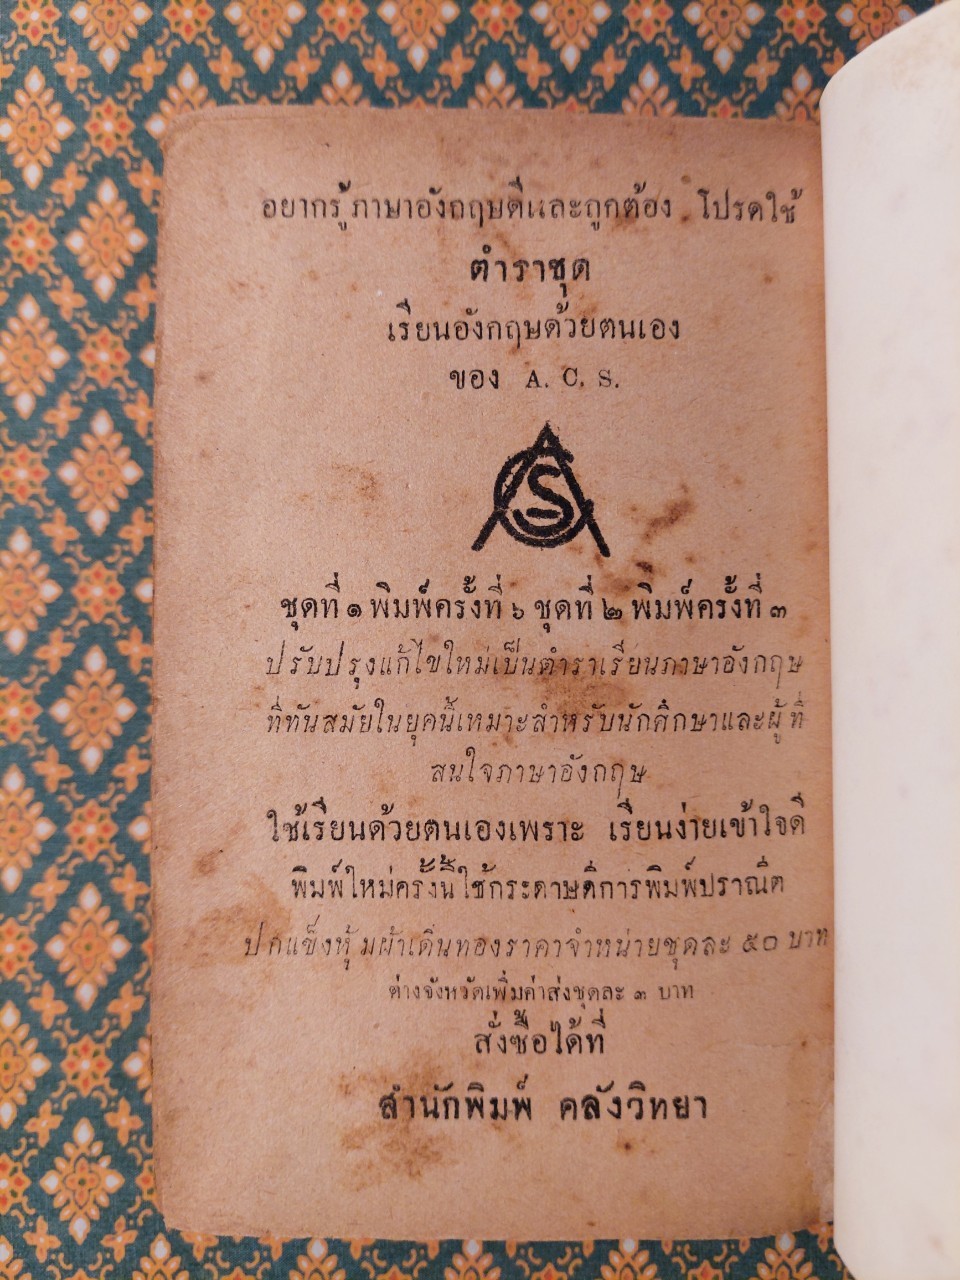 อยากรู้ภาษาอังกฤษดีและถูกต้อง โปรดใช้
ตำราชุด
เรียนอังกฤษด้วยตนเอง
ของ A. C. S.
ACS
ชุดที่ ๑ พิมพ์ครั้งที่ ๖ ชุดที่ ๒ พิมพ์ครั้งที่ ๓
ปรับปรุงแก้ไขใหม่เป็นตำราเรียนภาษาอังกฤษ
ที่ทันสมัยในยุคนี้เหมาะสำหรับนักศึกษาและผู้ที่
สนใจภาษาอังกฤษ
ใช้เรียนด้วยตนเองเพราะ เรียนง่ายเข้าใจดี
พิมพ์ใหม่ครั้งนี้ใช้กระดาษดีการพิมพ์ปราณีต
ปกแข็งหุ้มผ้าเดินทองราคาจำหน่ายชุดละ ๕๐ บาท
ต่างจังหวัดเพิ่มค่าส่งชุดละ ๓ บาท
สั่งซื้อได้ที่
สำนักพิมพ์ คลังวิทยา